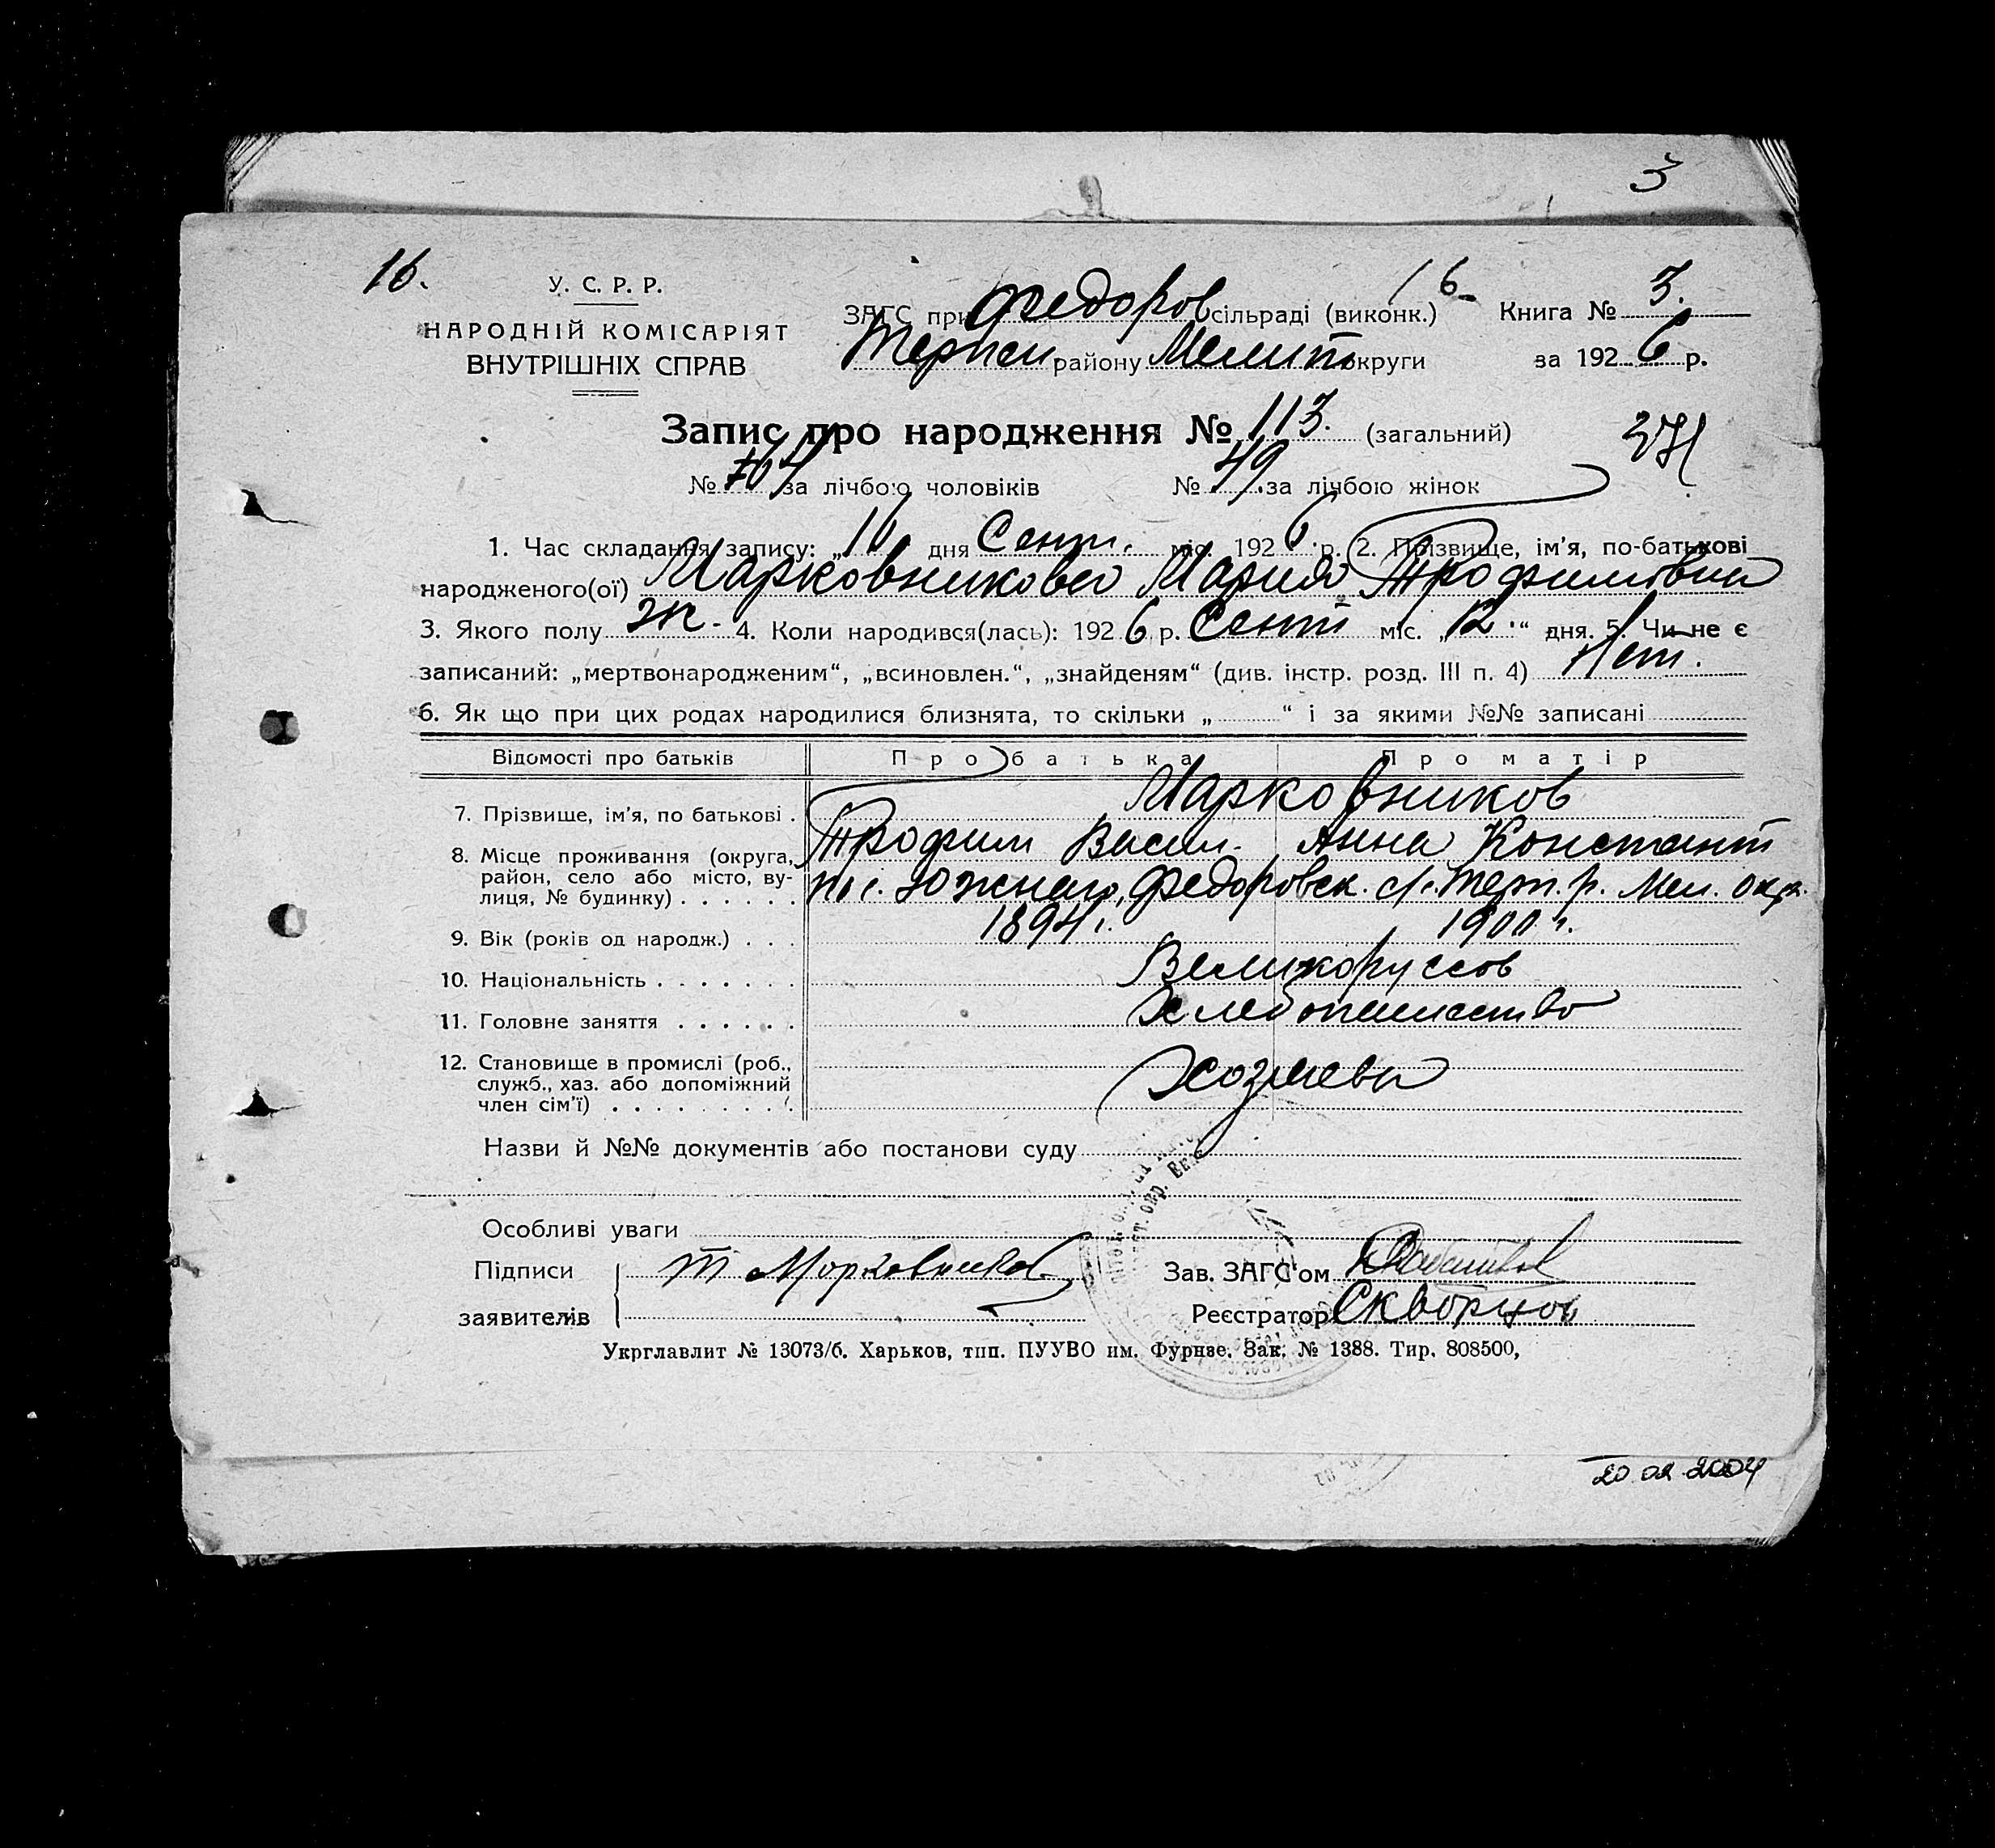 3
16.
У. С. Р. Р.
НАРОДНІЙ КОМІСАРІЯТ
ВНУТРІШНІХ СПРАВ
16
ЗАГС при Федоров сільраді (виконк.) Книга № 3.
Терпен району Мелит округи за 1926 р.
Запис про народження № 113. (загальний)
371
№ за лічбою чоловіків № 49. за лічбою жінок
1. Час складання запису: „ дня Сент. міс. 1926 р. 2. Прізвище, ім’я, по-батькові
народженого(ої) Марковникова Мария Трофимовна
3. Якого полу ж. 4. Коли народився(лась): 1926 р. Сент міс. „12“ дня. 5. Чи не є
записаний: „мертвонародженим“, „всиновлен.“, „знайденям“ (див. інстр. розд. III п. 4) Нет.
6. Як що при цих родах народилися близнята, то скільки „ “ і за якими №№ записані
Відомості про батьків Про батька Про матір
7. Прізвище, ім’я, по батькові . Марковников
Трофим Васил. Анна Констант
8. Місце проживання (округа,
район, село або місто, ву-
лиця, № будинку) . . . . . . пос. Южного, Федоровск. с/с. Терп. р. Мел. окр.
9. Вік (років од народж.) . . . 1894 г. 1900 г.
10. Національність . . . . . . . Великоруссов
11. Головне заняття . . . . . . Хлебопашество
12. Становище в промислі (роб.,
служб., хаз. або допоміжний
член сім’ї) . . . . . . . . . Хозяева
Назви й №№ документів або постанови суду
Особливі уваги
Підписи Т Марковников
заявителів
Зав. ЗАГС‘ом
Реєстратор Скворцов
Укрглавлит № 13073/б. Харьков, тип. ПУУВО им. Фурнзе. Зак. № 1388. Тир. 808500,
20.02.2004